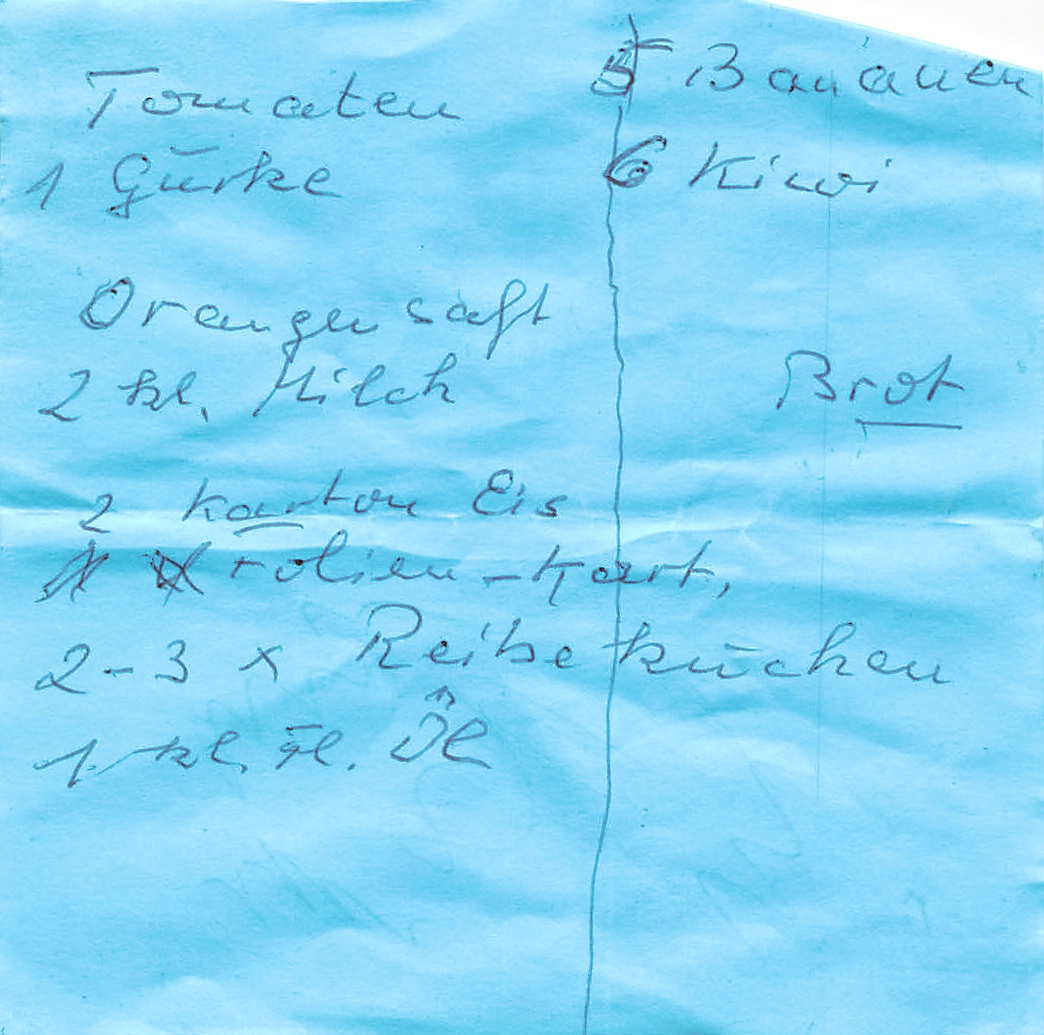 Tomaten
1 Gurke
Orangensaft
2 kl. Milch
2 Karton Eis
rolien-Kart,
2-3 x Reibekuchen
1 kl. Fl. Öl
5 Bananen
6 Kiwi
Brot